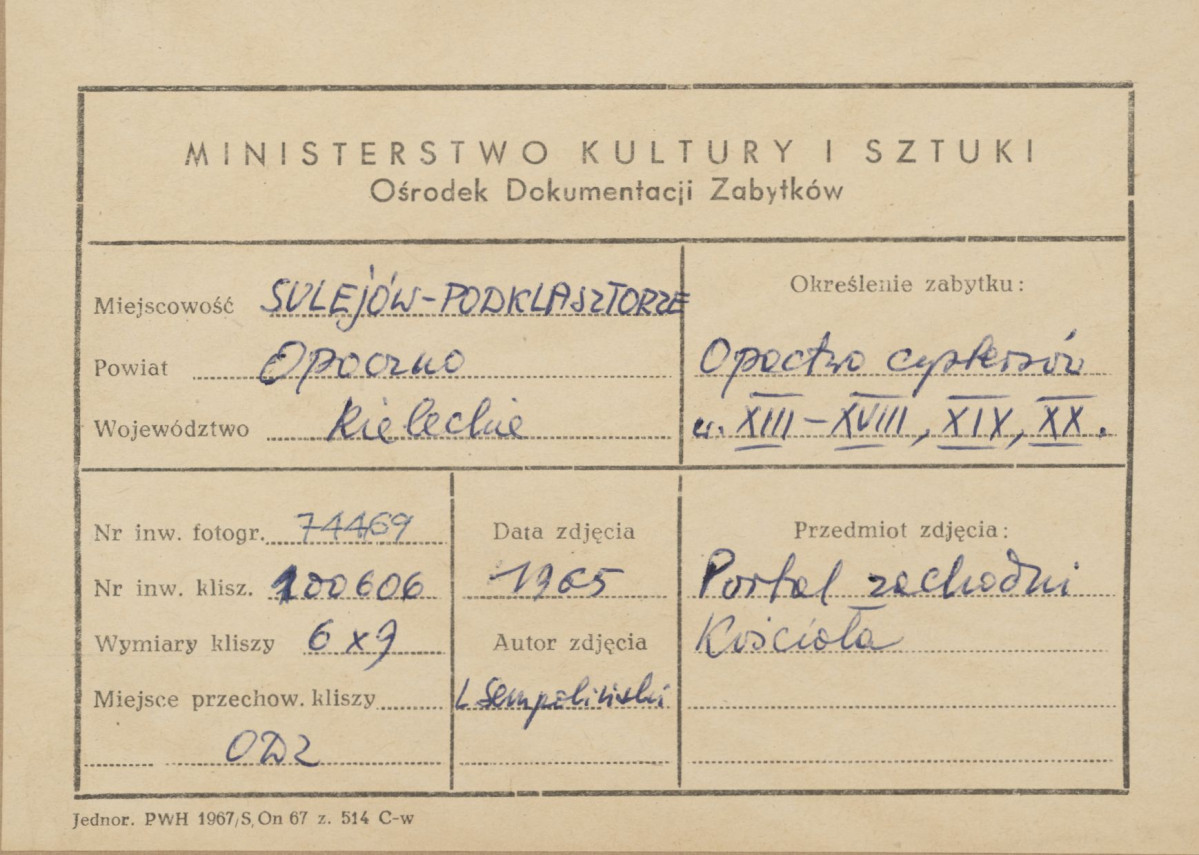 MINISTERSTWO KULTURY I SZTUKI
Ośrodek Dokumentacji Zabytków
Miejscowość SULEJÓW-PODKLASZTORZE
Powiat Opoczno
Województwo Kieleckie
Określenie zabytku:
Opactwo cystersów
w. XIII – XVIII, XIX, XX.
Nr inw. fotogr. 74469
Nr inw. klisz. 100606
Wymiary kliszy 6 x 9
Miejsce przechow. kliszy
ODZ
Data zdjęcia
1965
Autor zdjęcia
L Sempoliński
Przedmiot zdjęcia:
Portal zachodni
Kościoła
Jednor. PWH 1967/S, On 67 z. 514 C-w